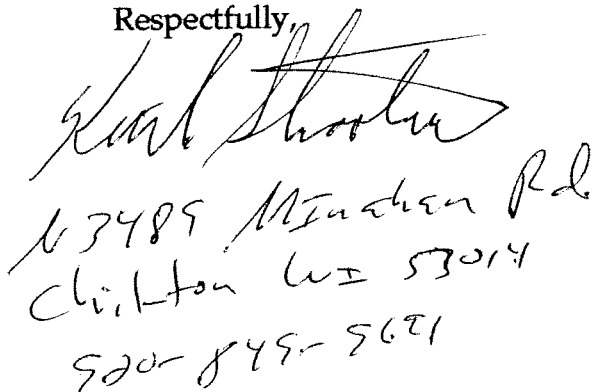 Respectfully,
N3489 Minahan Rd.
Chilton WI 53014
920-849-9691